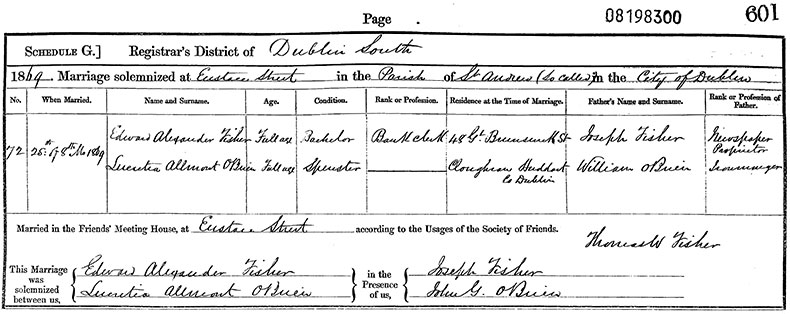 Page 08198300 601
SCHEDULE G.] Registrar's District of Dublin South
1869. Marriage solemnized at Eustace Street in the Parish of St Andrew (so called) in the City of Dublin
No. When Married. Name and Surname. Age. Condition. Rank or Profession. Residence at the Time of Marriage. Father's Name and Surname. Rank or Profession of Father.
72 25th of 8th Mo 1869 Edward Alexander Fisher Full age Bachelor Bank clerk 48 Gt Brunswick St Joseph Fisher Newspaper Proprietor
Lucretia Allmont O'Brien Full age Spinster Cloughran Co Dublin William O'Brien Ironmonger
Married in the Friends' Meeting House, at Eustace Street according to the Usages of the Society of Friends.
Thomas W Fisher
This Marriage was solemnized between us, Edward Alexander Fisher in the Presence of us, Joseph Fisher
Lucretia Allmont O'Brien John G. O'Brien